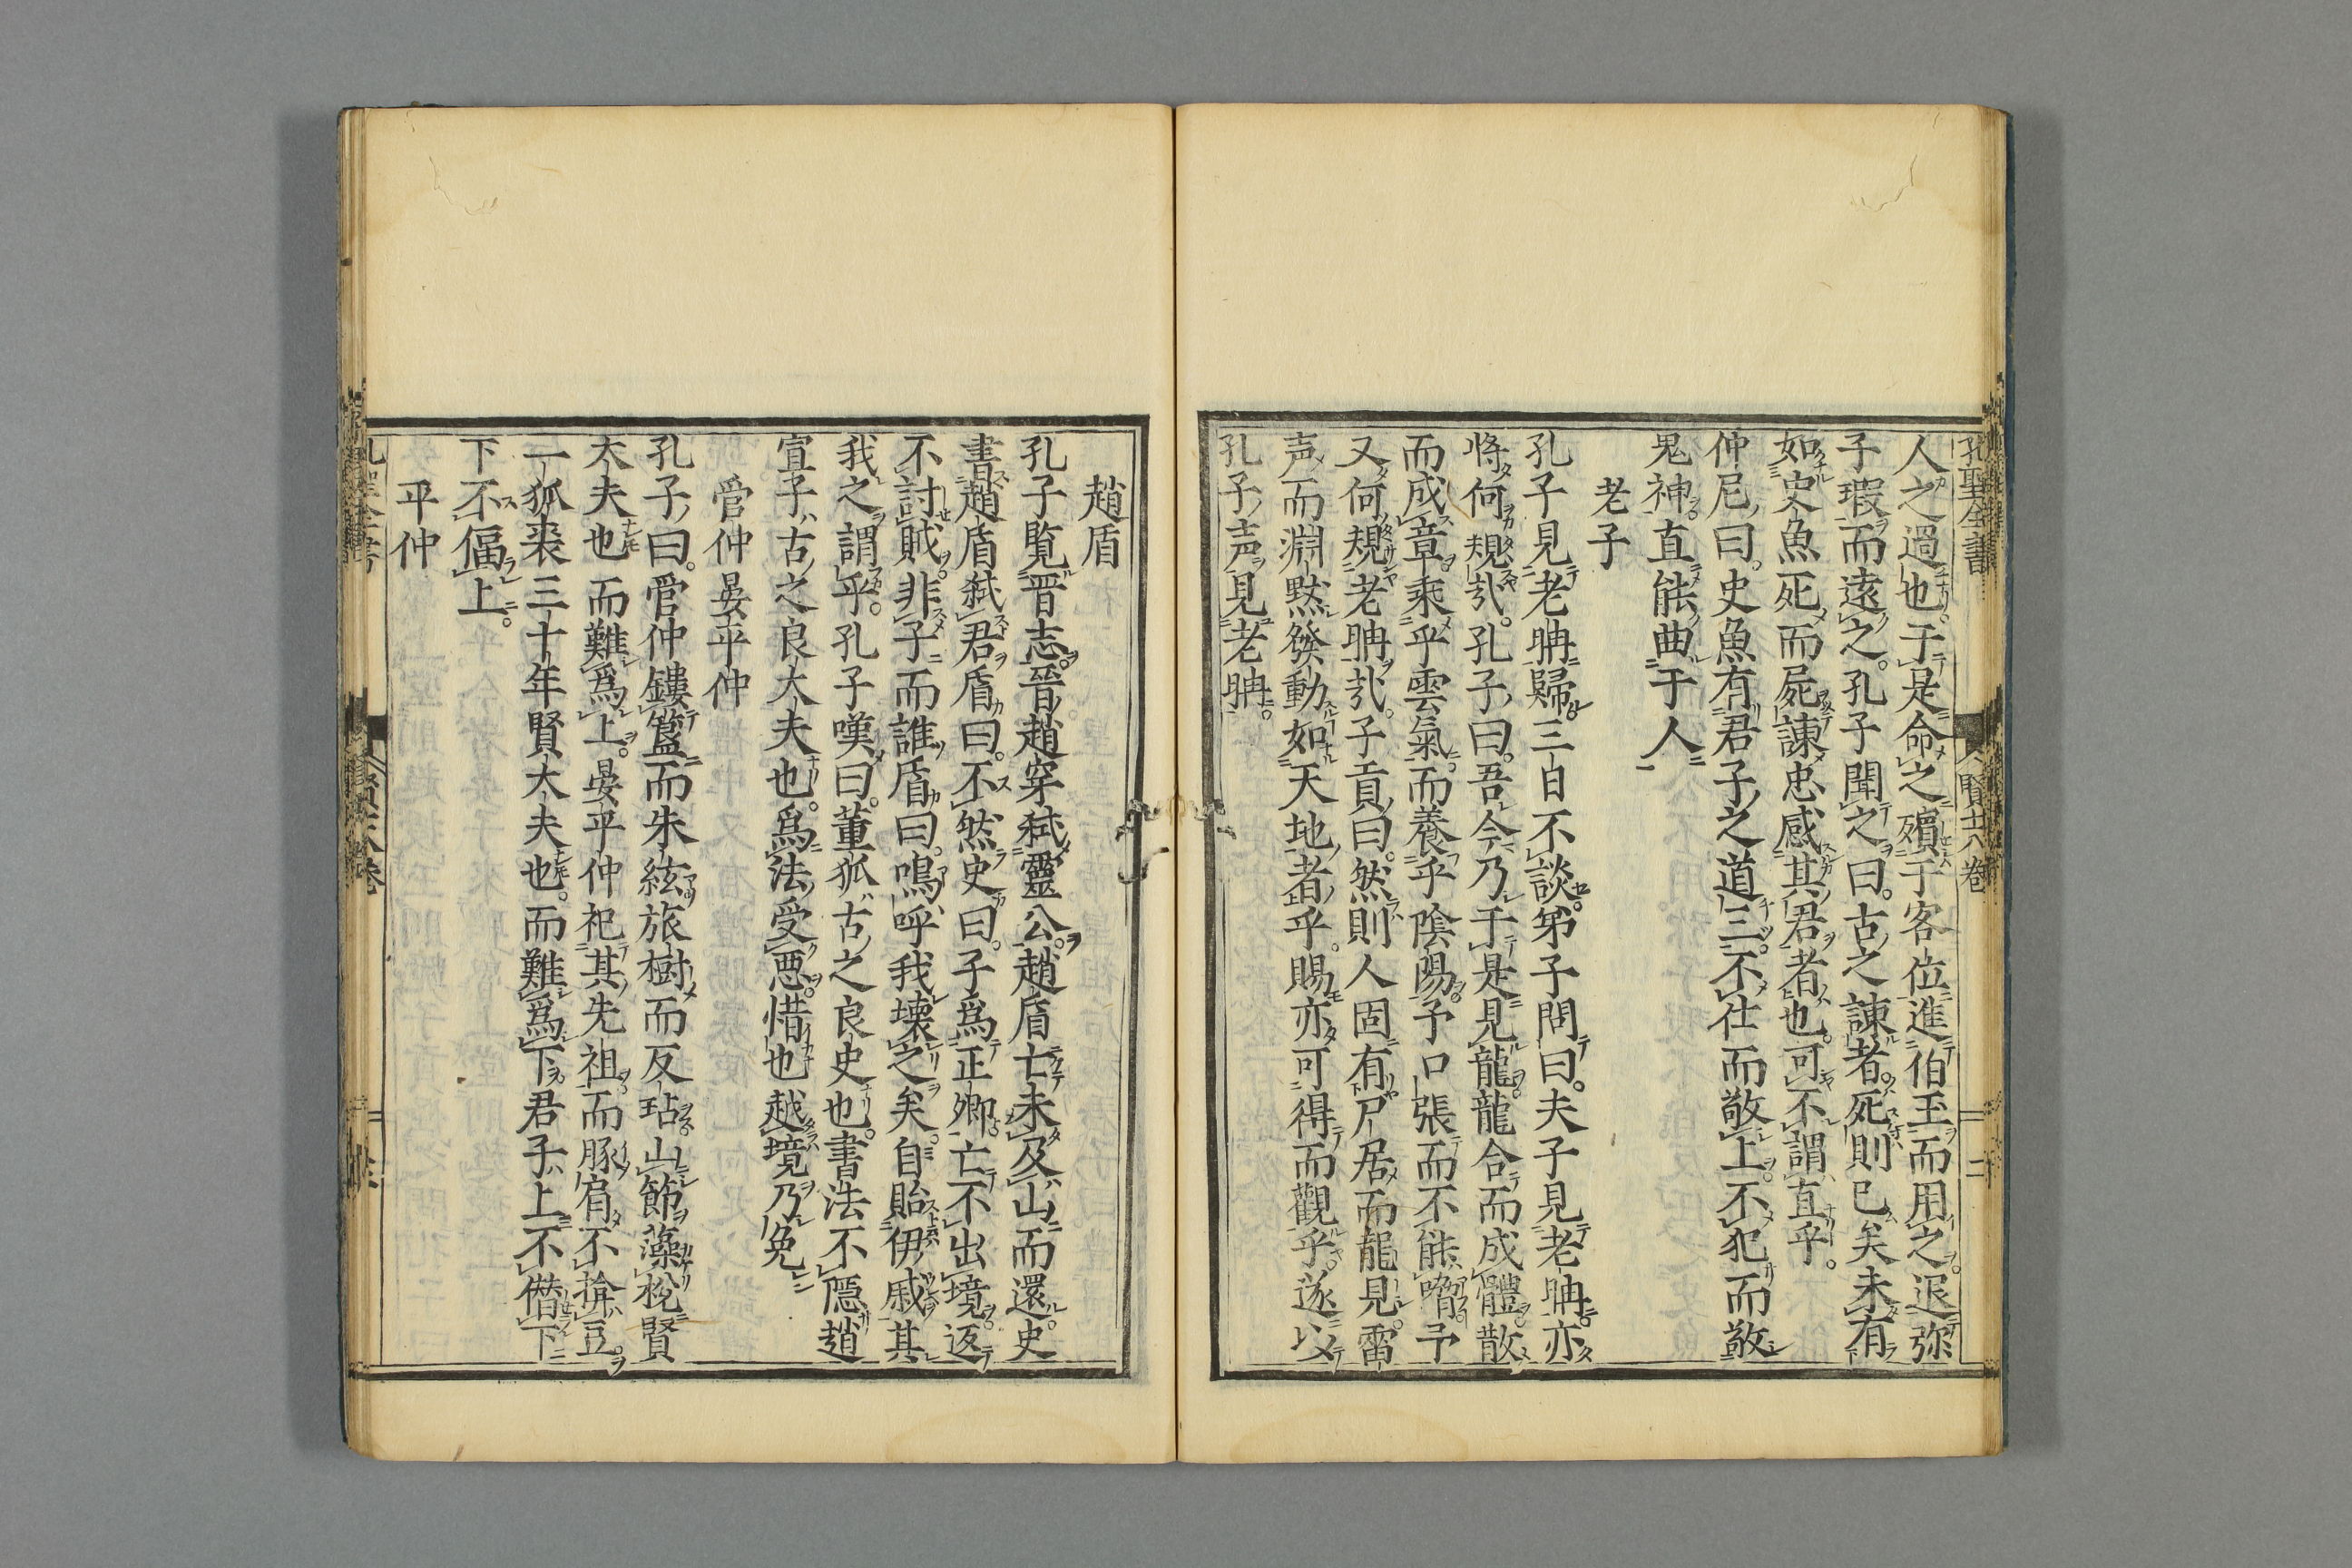 孔聖全書
賢十六卷
二
人之過也于是命之殯于客位進伯玉而用之退弥
子瑕而遠之孔子聞之曰古之諫者死則已矣未有
如史魚死而屍諫忠感其君者也可不謂直乎
仲尼曰史魚有君子之道三不仕而敬上不犯而敬
鬼神直能曲于人
老子
孔子見老聃歸三日不談第子問曰夫子見老聃亦
将何規㢤孔子曰吾今乃于是見龍龍合而成體散
而成章乘乎雲氣而養乎陰陽予口張而不能嗋予
又何規老聃㢤子貢曰然則人固有尸居而龍見雷
声而淵默發動如天地者乎賜亦可得而觀乎遂以
孔子声見老聃
趙盾
孔子覧晋志晉趙穿弑靈公趙盾亡未及山而還史
書趙盾弑君盾曰不然史曰子為正卿亡不出境返
不討賊非子而誰盾曰嗚呼我壞之矣自貽伊戚其
我之謂乎孔子嘆曰董狐古之良史也書法不隱趙
宣子古之良大夫也為法受惡惜也越境乃免
管仲晏平仲
孔子曰管仲鏤簋而朱紘旅樹而反玷山節藻梲賢
大夫也而難為上晏平仲祀其先祖而豚肩不揜豆
一狐裘三十年賢大夫也而難為下君子上不僭下
下不偪上
平仲